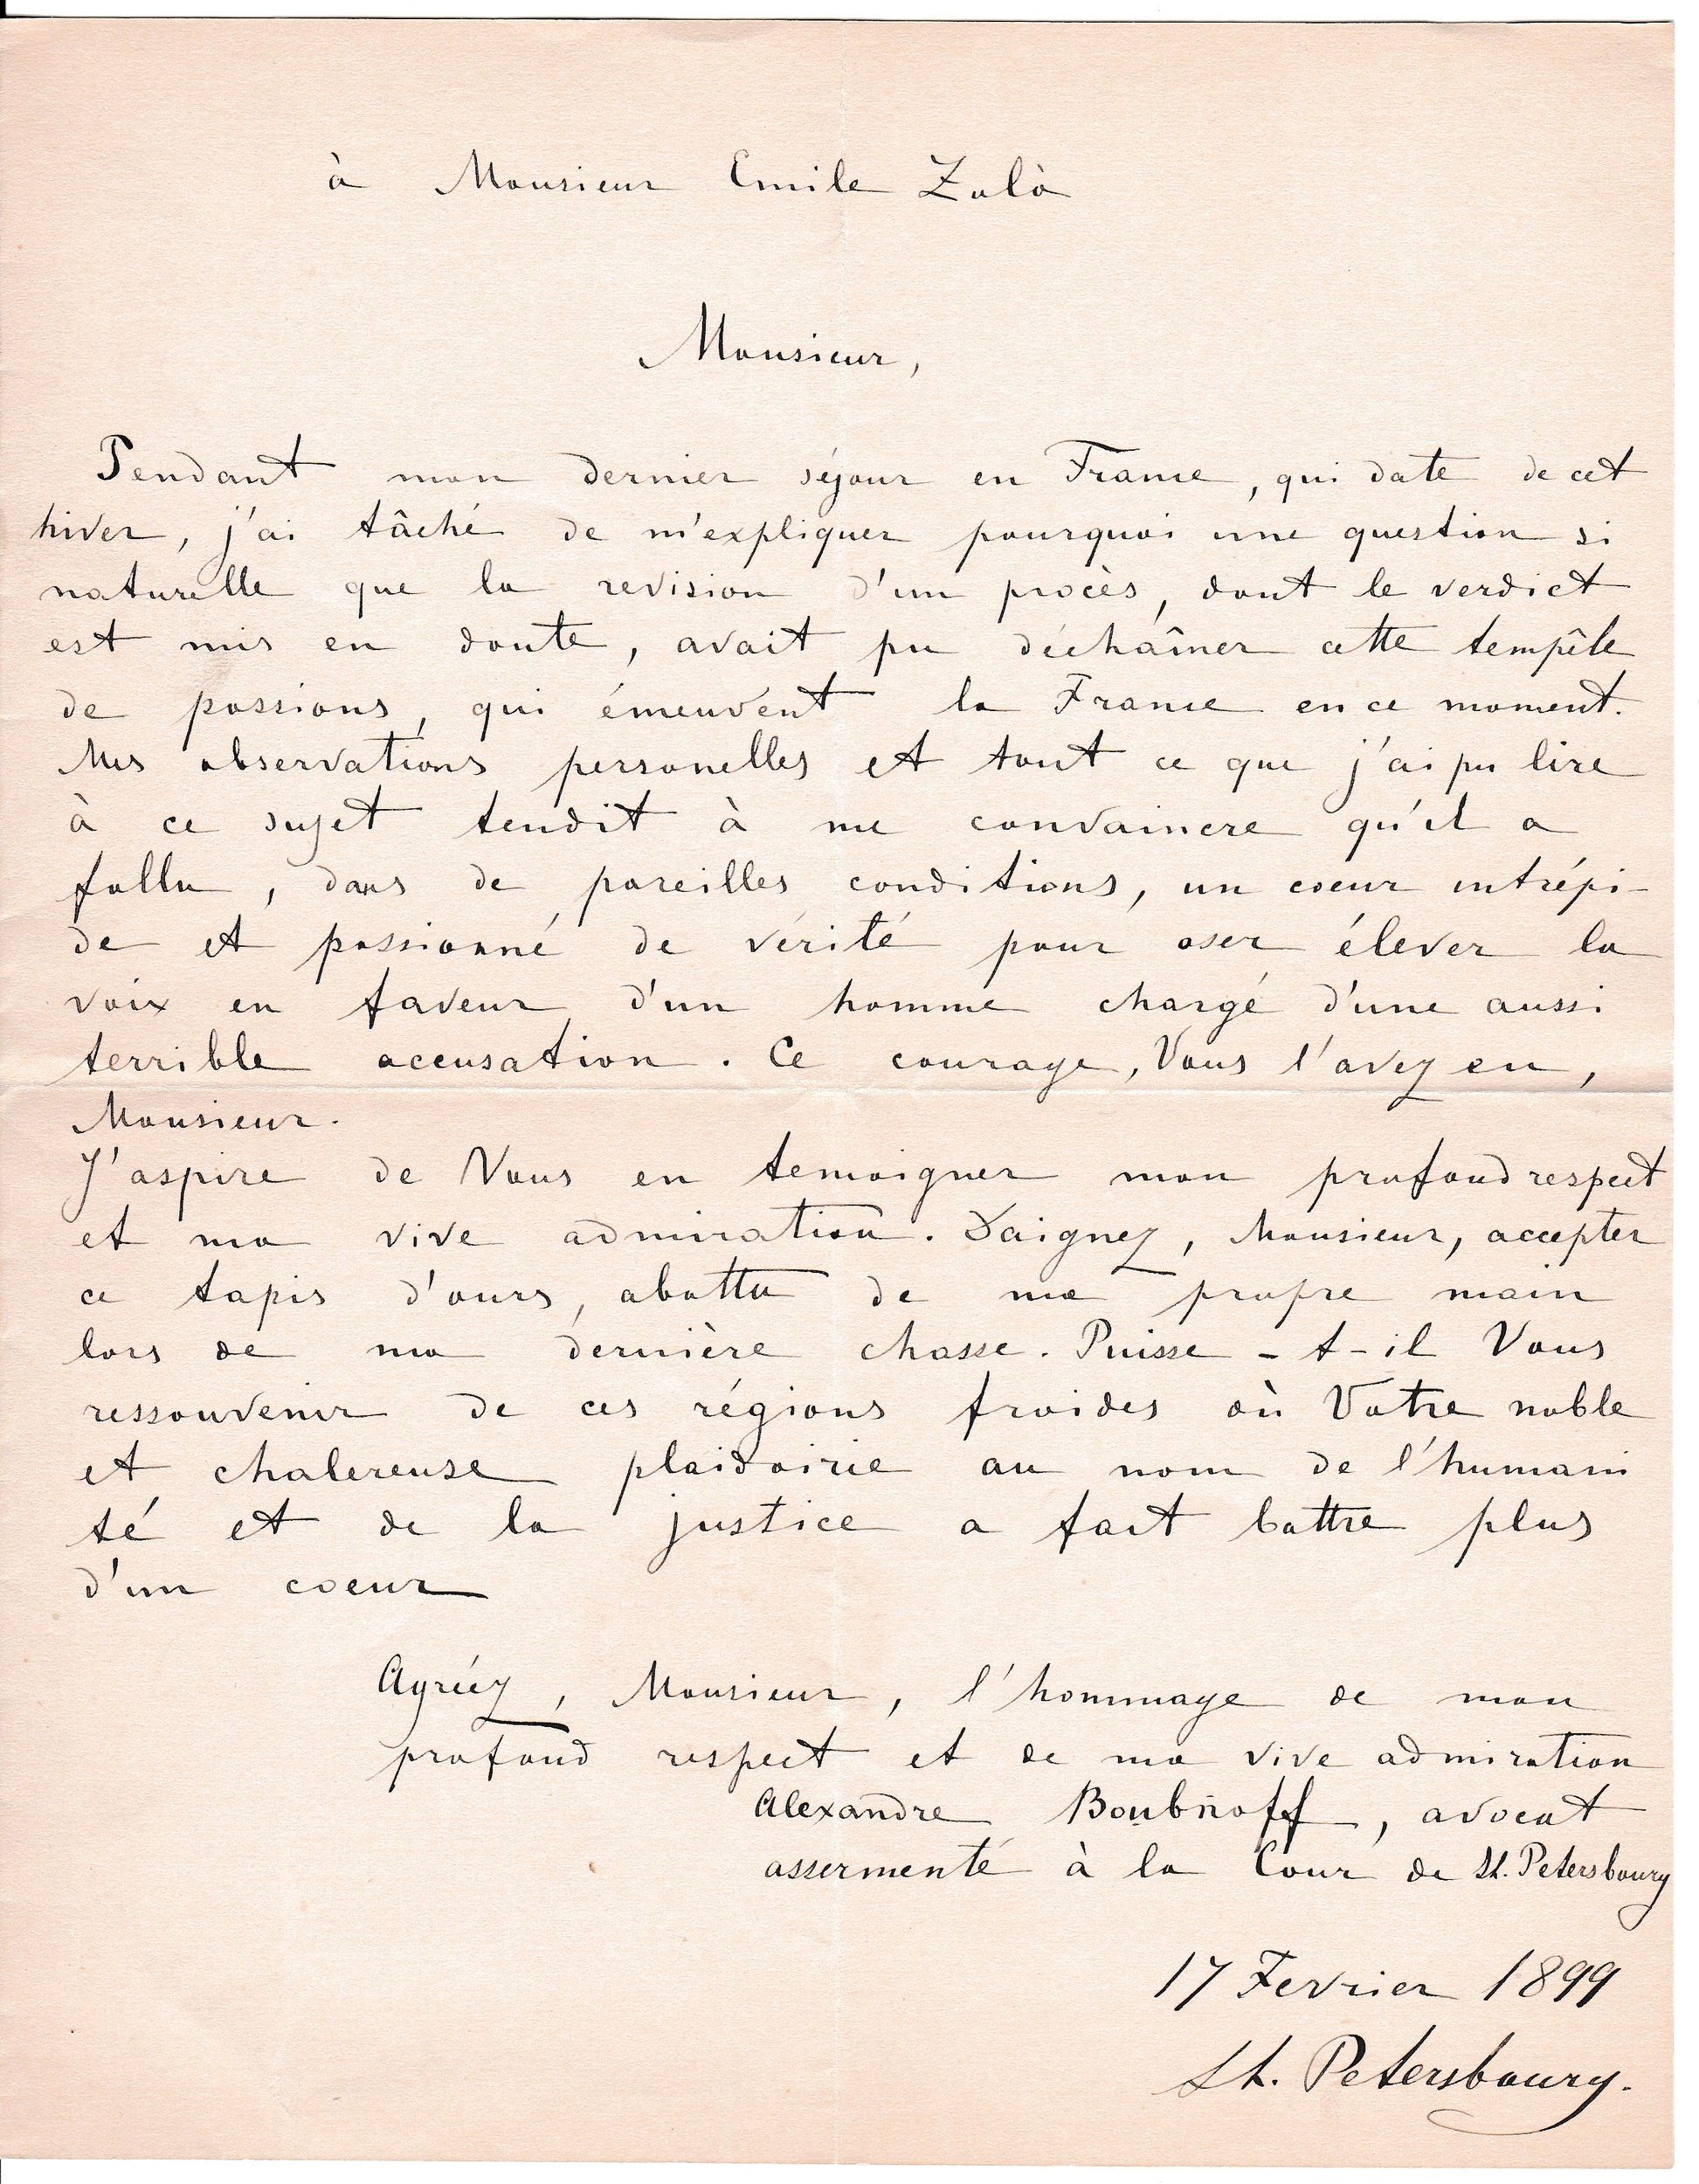 à Monsieur Emile Zolà
Monsieur,
Pendant mon dernier séjour en France, qui date de cet
hiver, j'ai tâché de m'expliquer pourquoi une question si
naturelle que la revision d'un procès, dont le verdict
est mis en doute, avait pu déchaîner cette tempête
de passions, qui émeuvent la France en ce moment.
Mes observations personelles et tout ce que j'ai pu lire
à ce sujet tendit à me convaincre qu'il a
fallu, dans de pareilles conditions, un coeur intrépi-
de et passionné de vérité pour oser élever la
voix en faveur d'un homme chargé d'une aussi
terrible accusation. Ce courage, Vous l'avez eu,
Monsieur.
J'aspire de Vous en temoigner mon profond respect
et ma vive admiration. Daignez, Monsieur, accepter
ce tapis d'ours, abattu de ma propre main
lors de ma dernière chasse. Puisse-t-il Vous
ressouvenir de ces régions froides où Votre noble
et chalereuse plaidoirie au nom de l'humani
té et de la justice a fait battre plus
d'un coeur
Agréez, Monsieur, l'hommage de mon
profond respect et de ma vive admiration
Alexandre Boubnoff, avocat
assermenté à la Cour de St. Petersbourg
17 Fevrier 1899
St. Petersbourg.